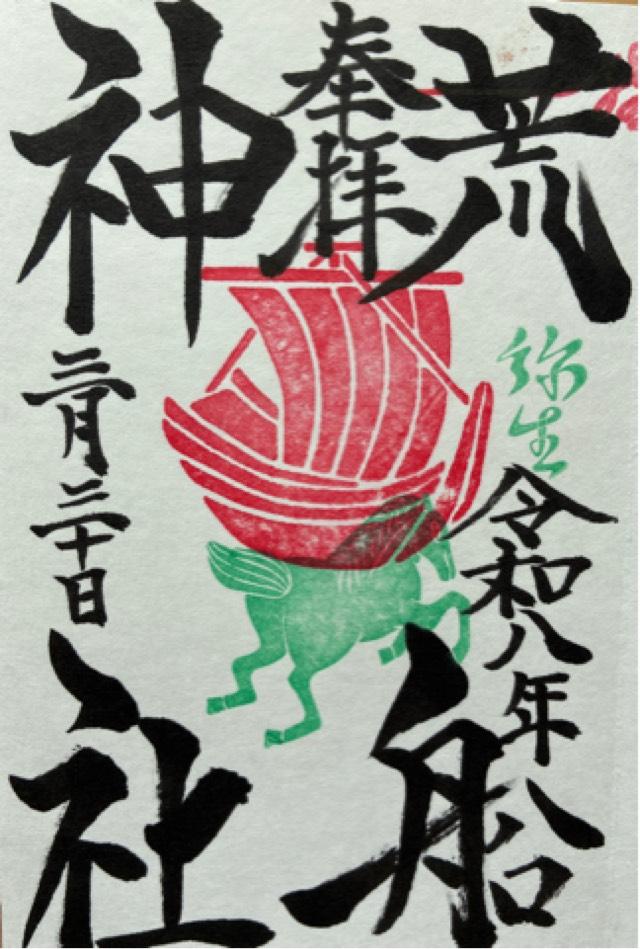 奉拝
荒船
神社
弥生
令和八年
三月三十日